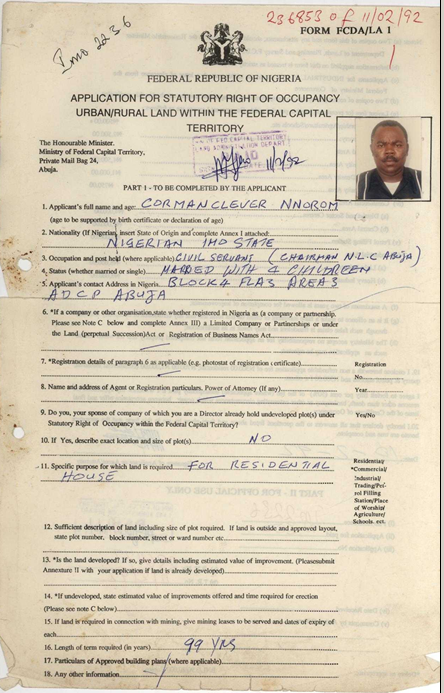 236853 of 11/02/92
Imo 2236
FORM FCDA/LA 1
FEDERAL REPUBLIC OF NIGERIA
APPLICATION FOR STATUTORY RIGHT OF OCCUPANCY
URBAN/RURAL LAND WITHIN THE FEDERAL CAPITAL
TERRITORY
The Honourable Minister.
Ministry of Federal Capital Territory,
Private Mail Bag 24,
Abuja.
11/2/92
PART 1 - TO BE COMPLETED BY THE APPLICANT
1. Applicant's full name and age: CORMANCLEVER NNOROM
(age to be supported by birth certificate or declaration of age)
2. Nationality (If Nigerian, insert State of Origin and complete Annex I attached:
NIGERIAN IMO STATE
3. Occupation and post held (where applicable) CIVIL SERVANT (CHAIRMAN N.L.C ABUJA)
4. Status (whether married or single) MARRED WITH 4 CHILDREEN
5. Applicant's contact Address in Nigeria. BLOCK 4 FLAS AREA 3
ADCP ABUJA
6. *If a company or other organisation, state whether registered in Nigeria as (a company or partnership.
Please see Note C below and complete Annex III) a Limited Company or Partnerships or under
the Land (perpetual Succession) Act or Registration of Business Names Act
7. *Registration details of paragraph 6 as applicable (e.g. photostat of registration certificate)
Registration
No.
8. Name and address of Agent or Registration particulars. Power of Attorney (If any)
Year
9. Do you, your sponse of company of which you are a Director already held undeveloped plot(s) under
Statutory Right of Occupancy within the Federal Capital Territory?
Yes/No
10. If Yes, describe exact location and size of plot(s) NO
11. Specific purpose for which land is required FOR RESIDENTIAL
HOUSE
Residential/
*Commercial/
Industrial/
Trading/Pet-
rol Filling
Station/Place
of Worship/
Agriculture/
Schools. ect.
12. Sufficient description of land including size of plot required. If land is outside and approved layout,
state plot number, block number, street or ward number etc
13. *Is the land developed? If so, give details including estimated value of improvement. (Pleasesubmit
Annexture II with your application if land is already developed)
14. *If undeveloped, state estimated value of improvements offered and time required for erection
(Please see note C below)
15. If land is required in connection with mining, give mining leases to be served and dates of expiry of
each
16. Length of term required (in years) 99 YRS
17. Particulars of Approved building plans (where applicable)
18. Any other information